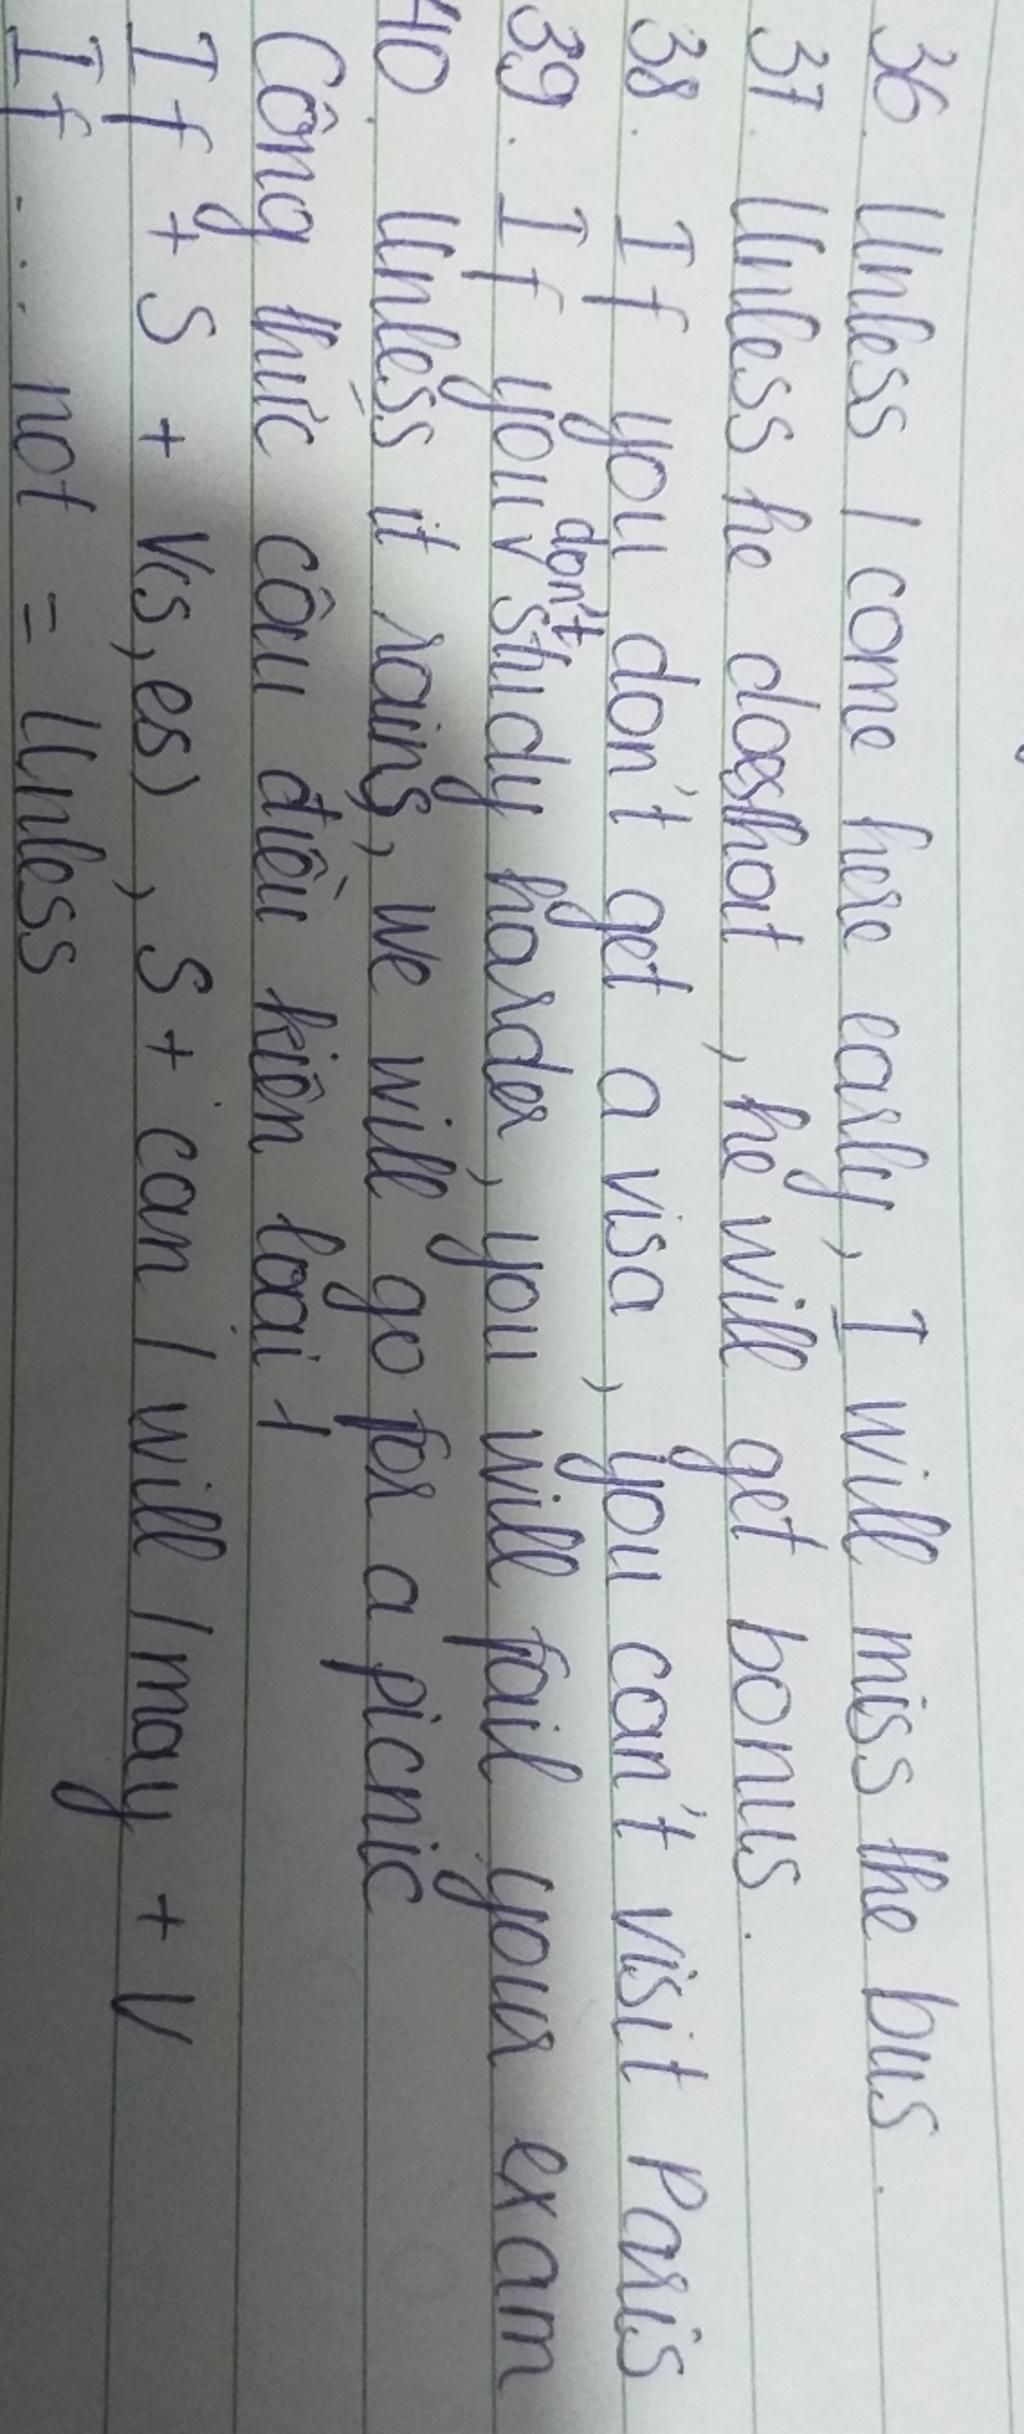 36. Unless I come here early, I will miss the bus.
37. Unless he does that, he will get bonus.
38. If you don't get a visa, you can't visit Paris
39. If you don't study harder, you will fail your exam
40. Unless it rains, we will go for a picnic
Công thức câu điều kiện loại 1
If + S + V(s,es), S + can / will / may + V
If ... not = Unless